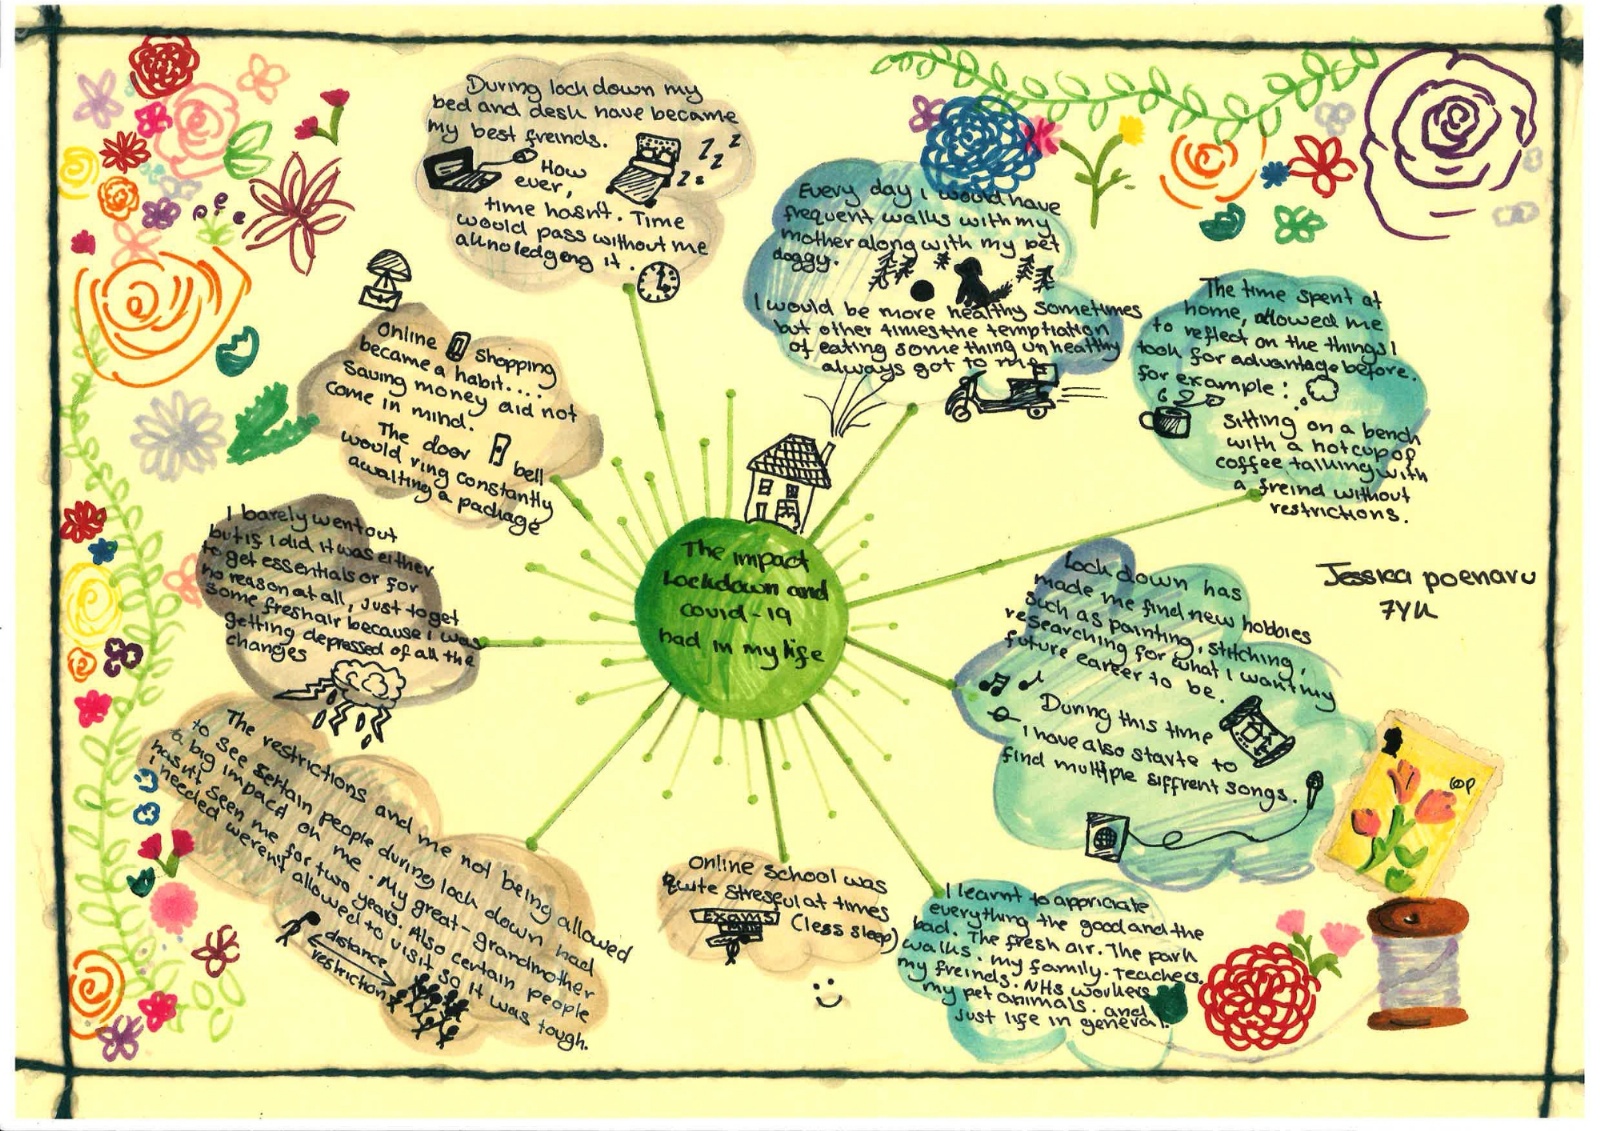 During lock down my
bed and desk have became
my best freinds.
How
ever,
time hasn't. Time
would pass without me
aknoledgeng it.
z z z
z z
Every day I would have
frequent walks with my
mother along with my pet
doggy.
I would be more healthy sometimes
but other times the temptiation
of eating something unhealthy
always got to me
The time spent at
home, allowed me
to reflect on the things I
took for advantage before.
for example:
Sitting on a bench
with a hot cup of
coffee talking with
a freind without
restrictions.
Online shopping
became a habit...
Saving money did not
come in mind.
The door bell
would ring constantly
awaiting a package
I barely went out
but if I did it was either
to get essentials or for
no reason at all, just to get
some fresh air because I was
getting depressed of all the
changes
The impact
Lockdown and
covid-19
had in my life
Jessica poenaru
7YK
Lock down has
made me find new hobbies
such as painting, stitching,
researching for what I want my
future career to be.
During this time
I have also starte to
find multiple siffrent songs.
The restrictions and me not being allowed
to see sertain people during lock down had
a big impacd on me. My great-grandmother
hasn't seen me for two years. Also certain people
I needed weren't allowed to visit so it was tough.
distance
restriction
Online school was
quite streseful at times
EXAMS (less sleep)
I learnt to appriciate
everything the good and the
bad. The fresh air. The park
walks. my family. teachers.
my freinds. NHS workers
my pet animals. and
just life in general.